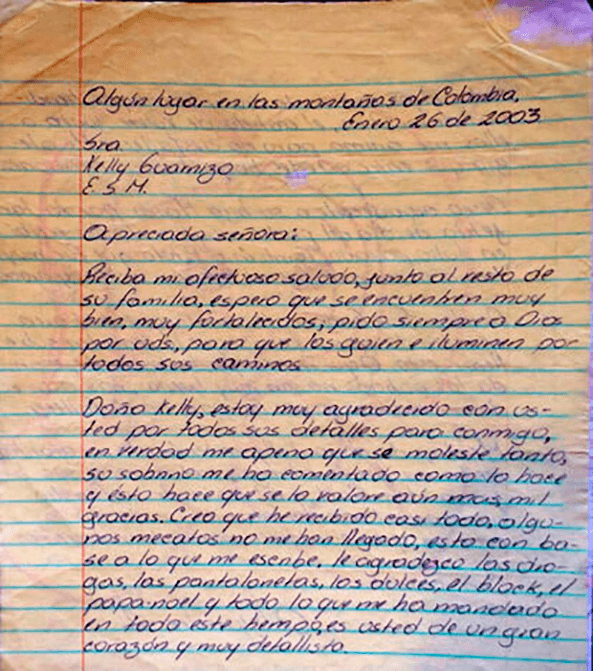 Algún lugar en las montañas de Colombia,
Enero 26 de 2003
Sra
Kelly Guarnizo
E. S. M.
Apreciada señora:
Reciba mi afectuoso saludo, junto al resto de
su familia, espero que se encuentren muy
bien, muy fortalecidos, pido siempre a Dios
por uds, para que los guien e iluminen por
todos sus caminos
Doña Kelly, estoy muy agradecido con us-
ted por todos sus detalles para conmigo,
en verdad me apena que se moleste tanto,
su sobrino me ha comentado como lo hace
y ésto hace que se lo valore aún mas, mil
gracias. Creo que he recibido casi todo, algu-
nos mecatos no me han llegado, esto con ba-
se a lo que me escribe. le agradezco las dro-
gas, las pantalonetas, los dulces, el block, el
papa-noel y todo lo que me ha mandado
en todo este tiempo, es usted de un gran
corazón y muy detallista.